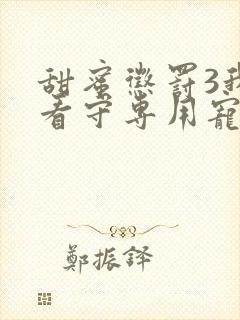 甜蜜懲罰3我
看守專用寵
鄭振鐸